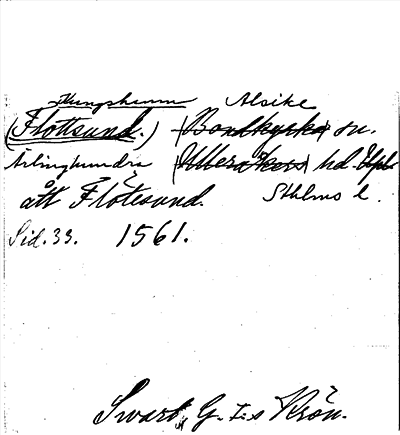 Kungshamn Alsike
(Flottsund.) (Bondkyrko) sn.
Ärlinghundra (Ulleråkers) hd. Upl.
ått Flötesund. Sthlms l.
Sid. 33. 1561.
Swart, G. I:s Krön.